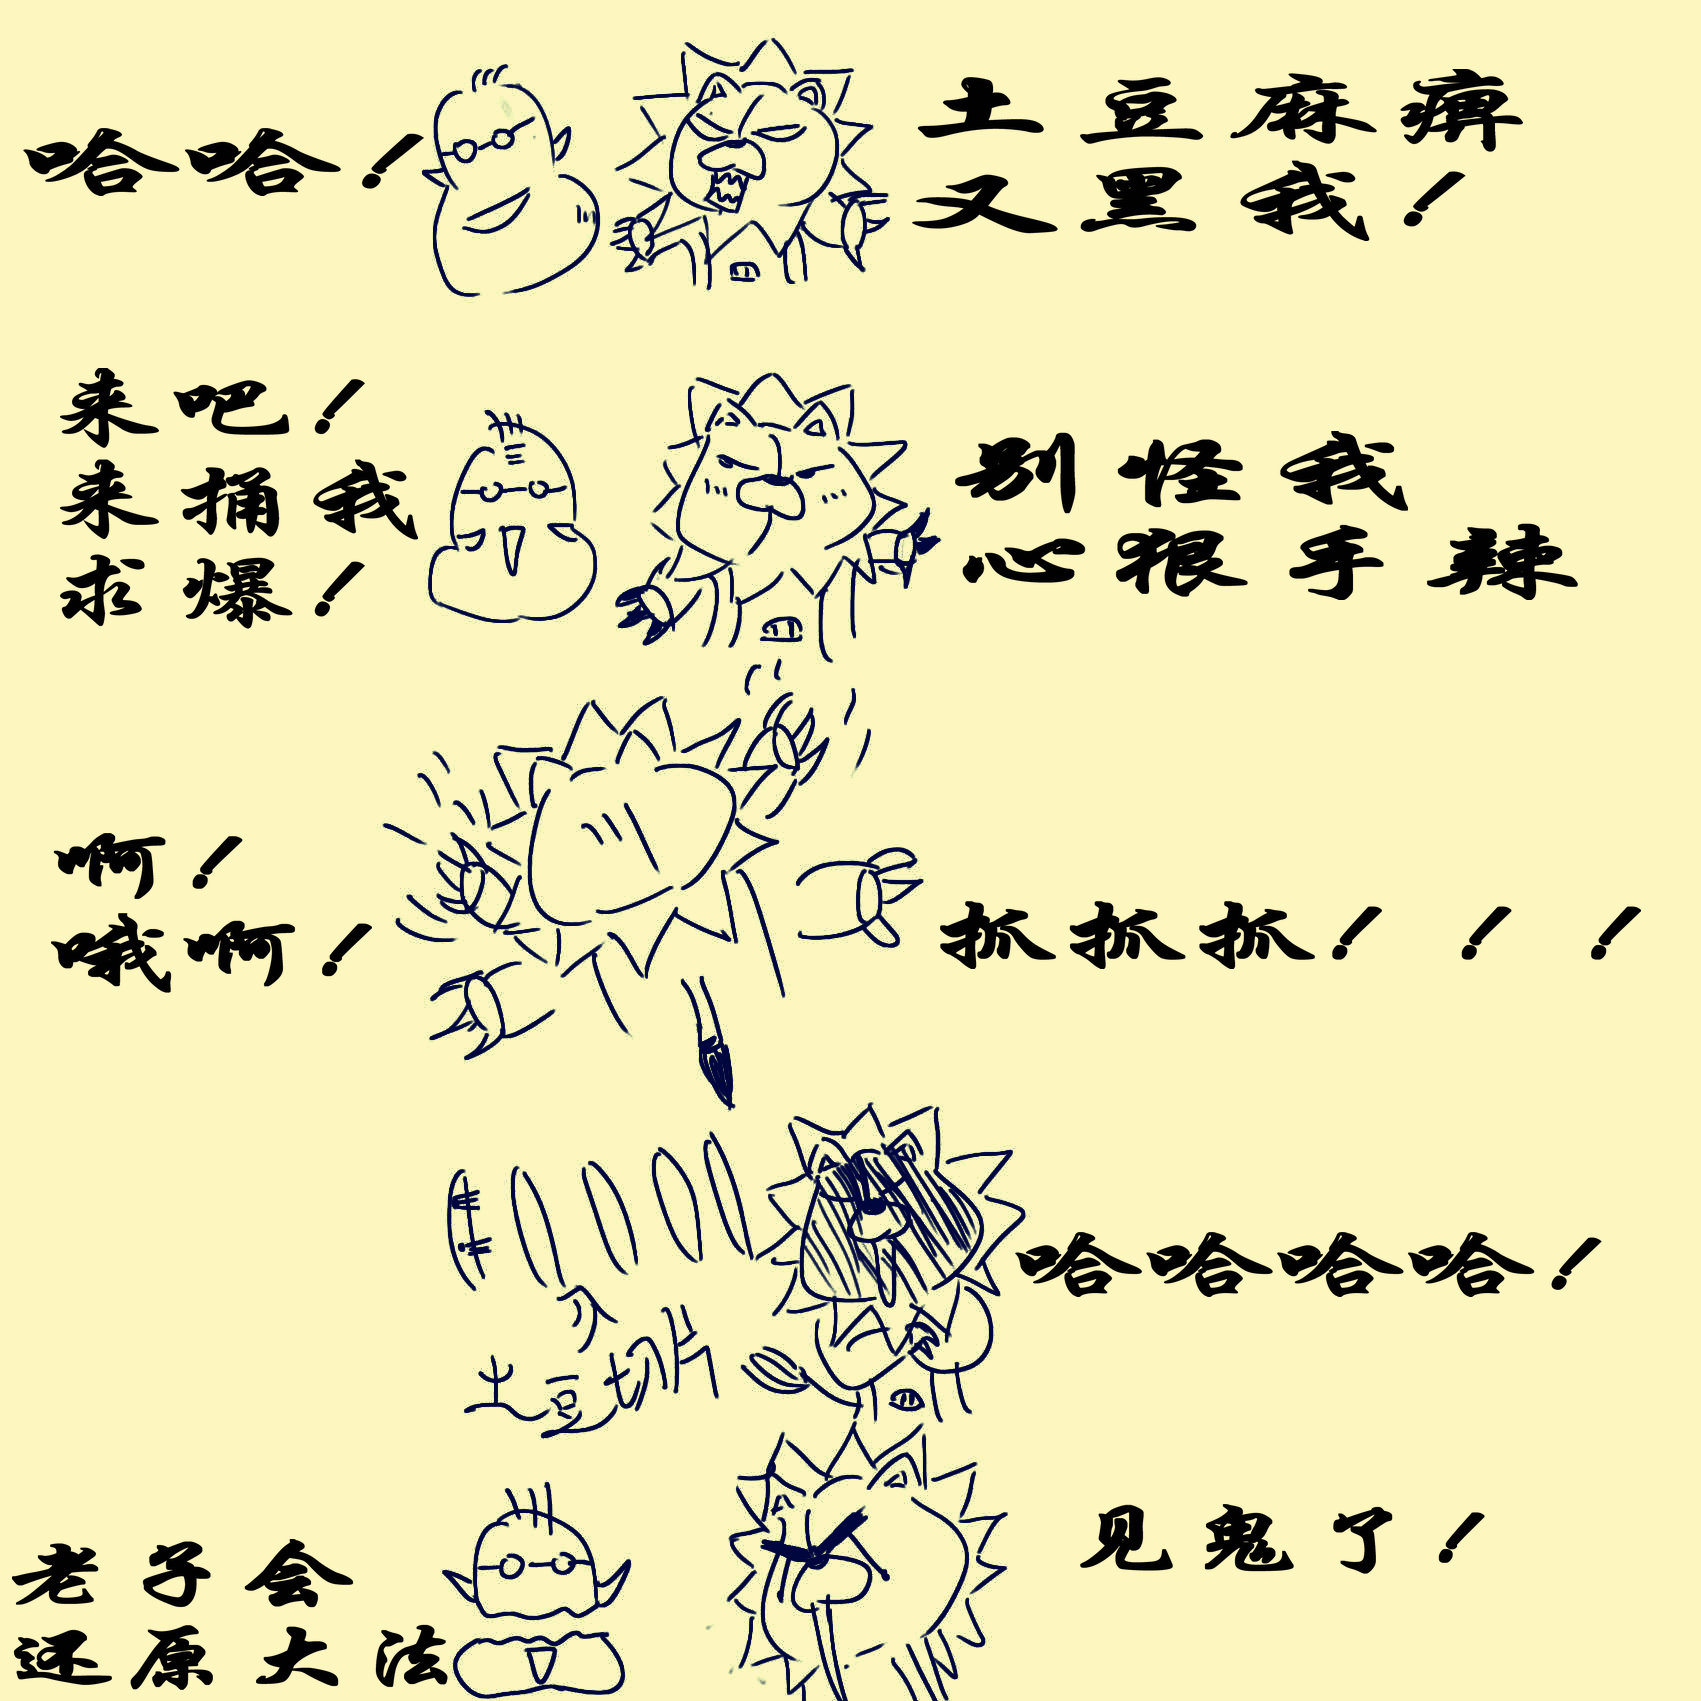 哈哈！
土豆麻痹
又黑我！
来吧！
来捅我
求爆！
别怪我
心狠手辣
啊！
哦啊！
抓抓抓！！！
哈哈哈哈！
土豆切片
老子会
还原大法
见鬼了！